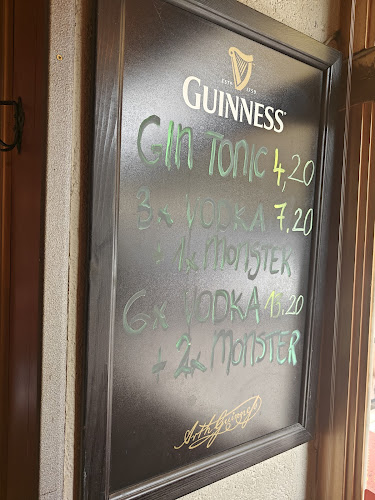 ESTD 1759
GUINNESS
GIN TONIC 4,20
3x VODKA 7.20
+ 1x MONSTER
6x VODKA 13.20
+ 2x MONSTER
Arth Guinness